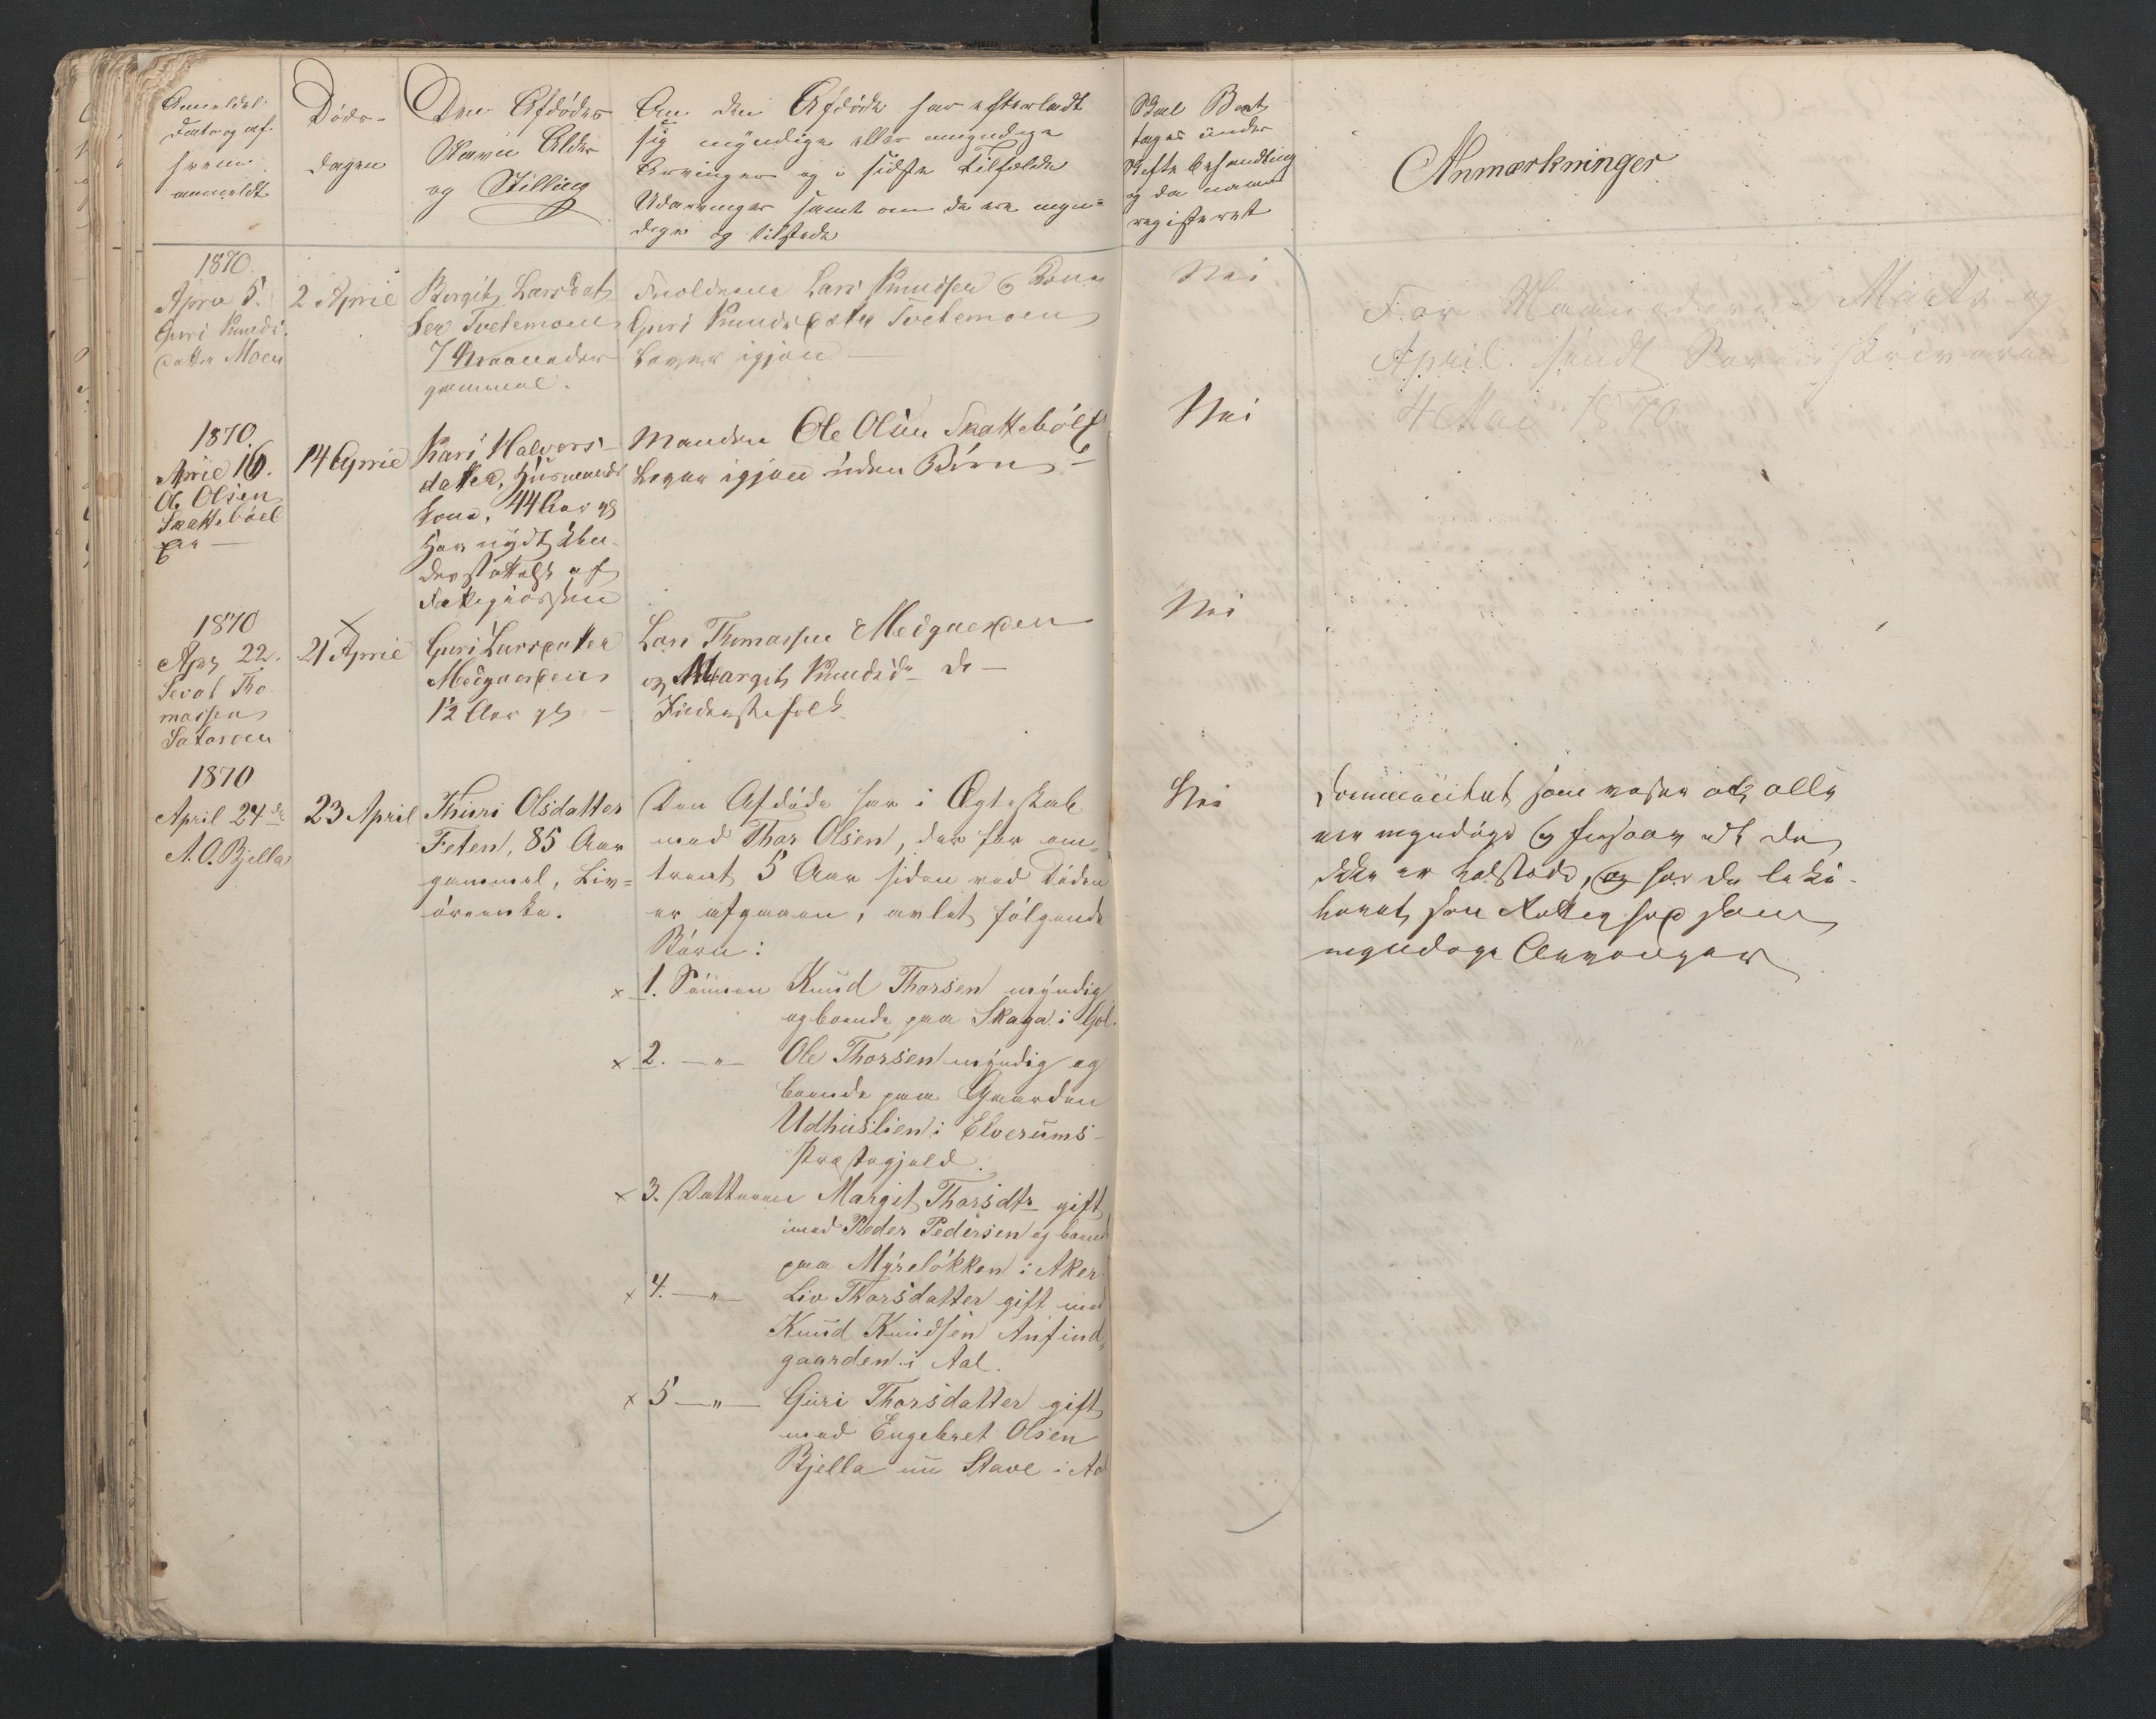 Anmeldel.
Dato og af
hvem
anmeldt
Døds-
dagen
Den Afdødes
Navn Alder
og Stilling
Om den Afdøde har efterladt
sig myndige eller umyndige
Arvinger og i sidste Tilfælde
Udarvinger samt om de ere myn-
dige og tilstede
Skal Boet
tages under
Skifte behandling
og da naar
registeret
Anmærkninger
1870.
April 5.
Guri Knuds-
datter Moen
2 April
Bergit Larsdat
ter Tvetemoen
7 Maaneder
gammel.
Forældrene Lars Knudsen & Kone
Guri Knudsdatter Tvetemoen
Lever igjen
Nei
For Maanederne Marts og
April sendt Sorenskriveren
4 Mai 1870
1870.
April 16.
Ole Olsen
Skattebøl
14 April
Kari Halvors-
datter, Huusmands
Kone, 44 Aar gl
Har nydt Un-
derstøttelse af
Fattigkassen
Manden Ole Olsen Skattebøl
Lever igjen uden Børn
Nei
1870
Apr 22.
Sevat Tho
massen
21 April
Guri Larsdatter
Medgaarden
12 Aar gl
Lars Thomassen Medgaarden
og Margit Knudsdr do
Inderstefolk
Nei
1870
April 24de
A. O. Bjella
23 April
Thuri Olsdatter
Feten, 85 Aar
gammel, Liv=
øreenke.
Den Afdøde har i Ægteskab
med Thor Olsen, der for om-
trent 5 Aar siden ved Døden
er afgaaen, avlet følgende
Børn:
x 1. Sønnen Knud Thorsen myndig
og boende paa Skaga i Gol.
x 2. —„— Ole Thorsen myndig og
boende paa Gaarden
Udhuslien i Elverums
Præstegjeld.
x 3. Datteren Margit Thorsdtr gift
med Peder Pedersen og boend
paa Myreløkken i Aker
x 4. —„— Liv Thorsdatter gift med
Knud Knudsen Anfind-
gaarden i Aal.
x 5 —„— Guri Thorsdatter gift
med Engebret Olsen
Bjella nu Stave i Aal
Nei
som viser at alle
ere myndige og
ikke er tilstede, og har de
myndige Arvinger